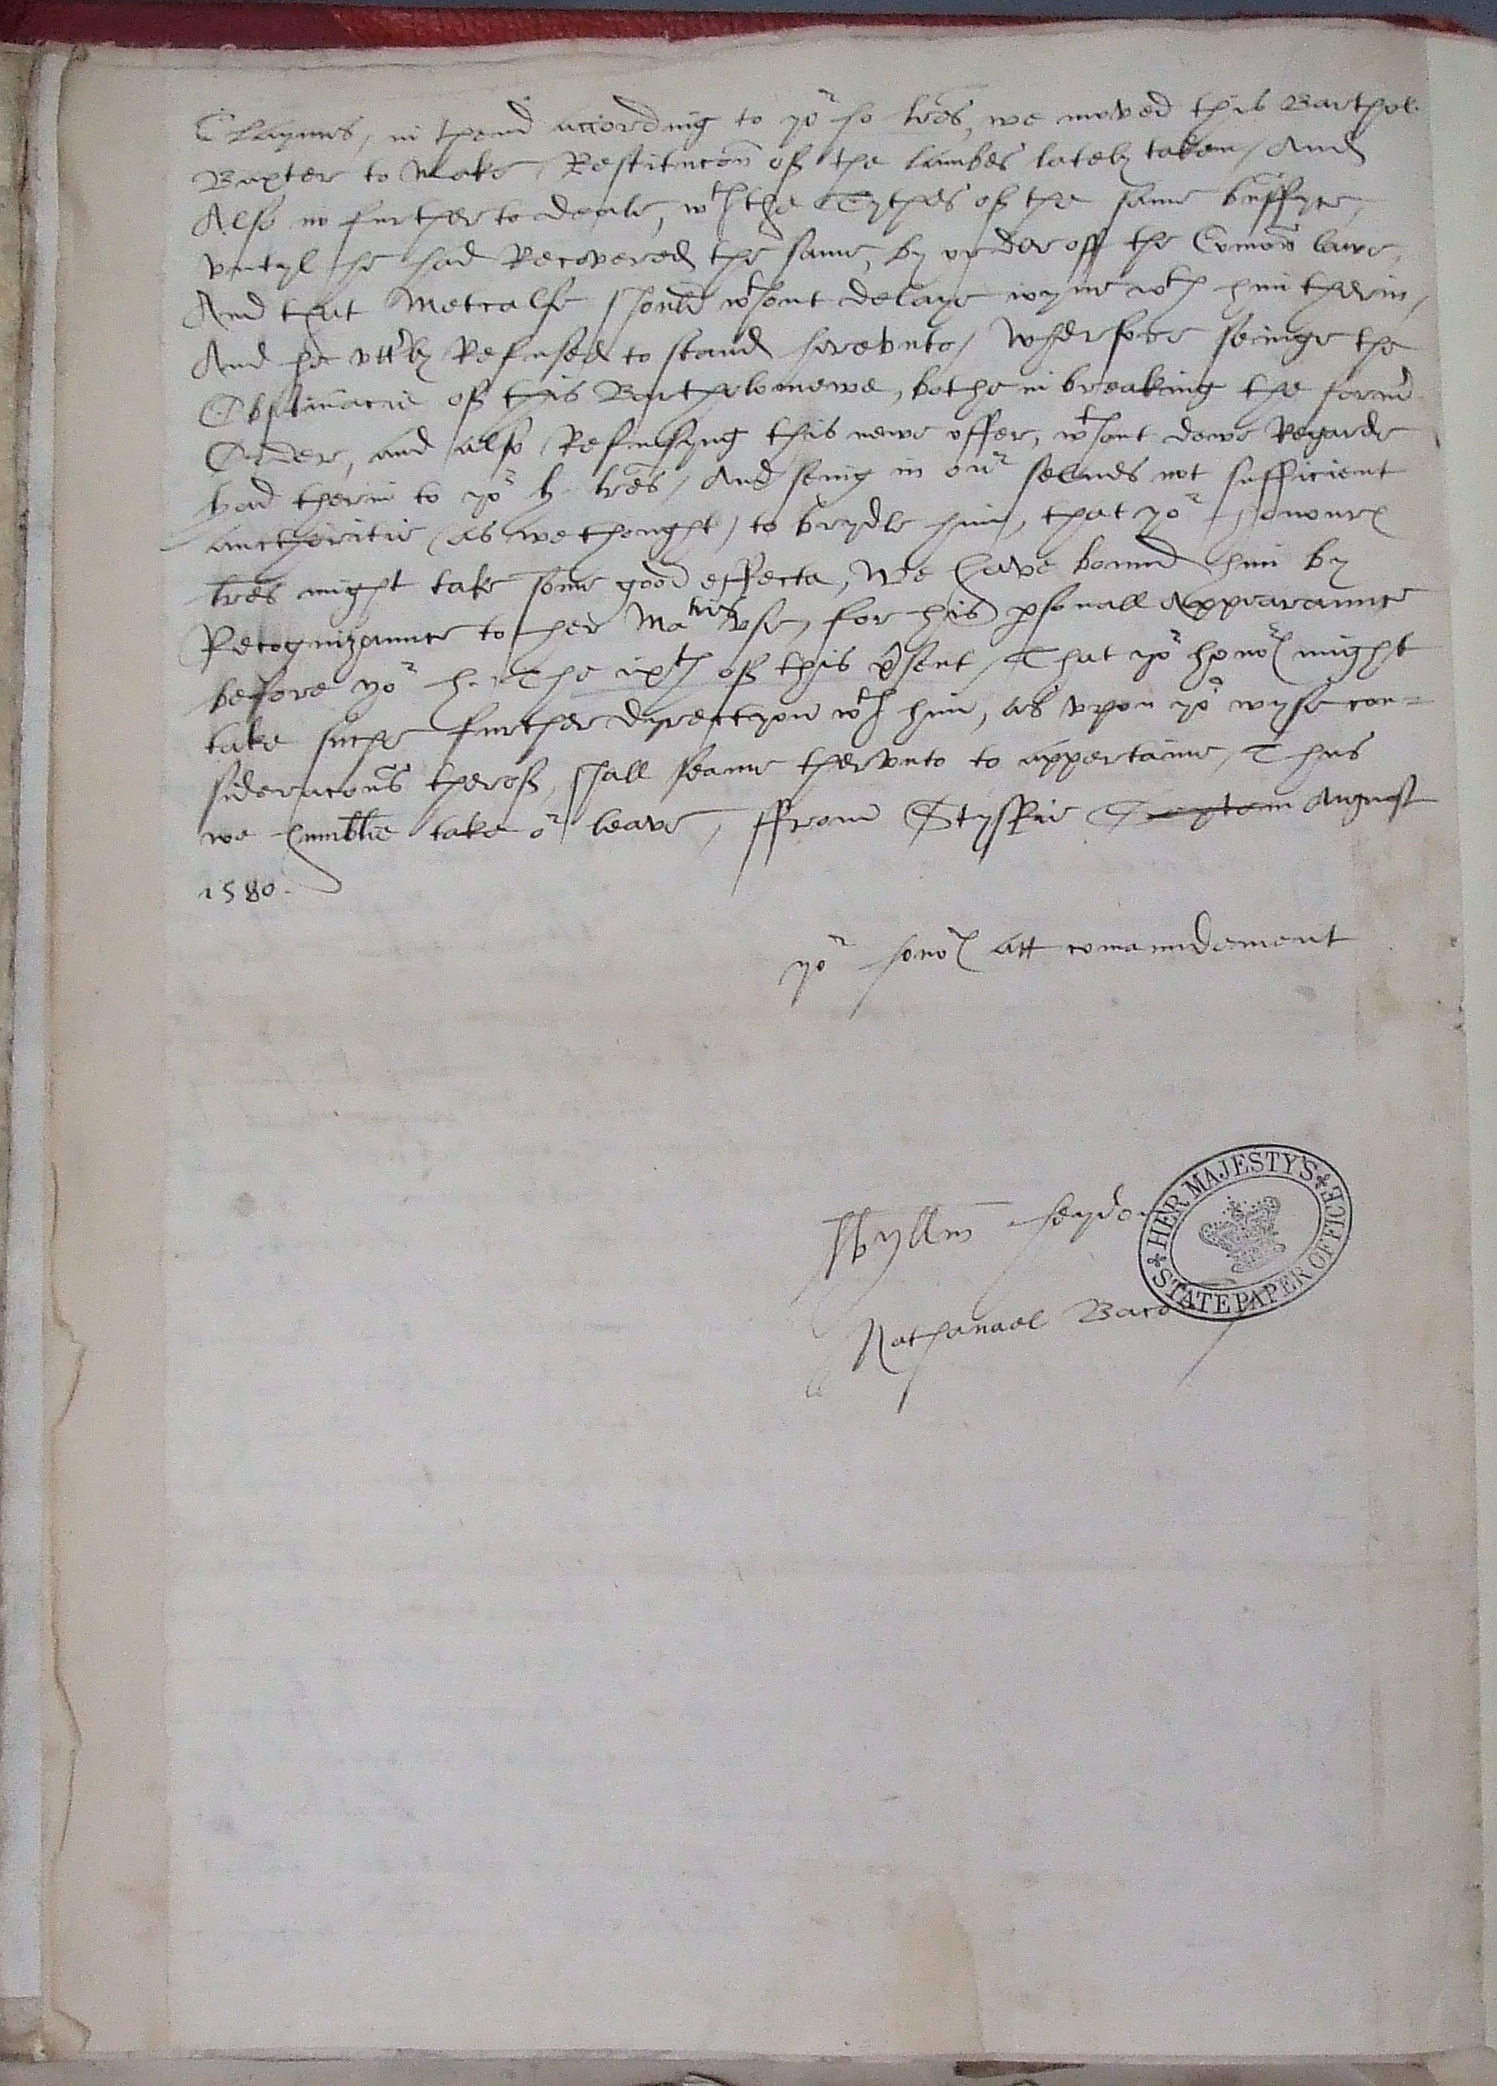 Claymes, in thend according to yor ho lres, we moved this Barthol.
Baxter to make Restitucon of the lambes lately taken, And
Also no further to deale, wth the Tythes of the same
vntyl he had Recovered the same, by order off the Comon lawe,
And that Metcalfe should wthout delaye wth him therin,
And he vttrly Refused to stand herevnto, Wherfore seinge the
Obstinacie of this Bartholomewe, bothe in breaking the formr
Order, and also Refusyng this newe offer, wthout dewe Regarde
had therin to yor h. lres, And seing in our selves not sufficient
aucthoritie (as we thought) to brydle him, that yor honours
lres might take some good effecte, We have bound him by
Recognizaunce to her Maties vse, for his psonall Appearaunce
before yor h. The ixth of this psent, That yor honors might
take suche further dyrectyon wth him, as vpon yor wyse con=
sideracons therof, shall seame thervnto to appertaine, Thus
we humblie take or leave, ffrom Styfkie August
1580.
yor honors att comaundement
Wyllm heydon
Nathanael Baco
HER MAJESTY'S
STATE PAPER OFFICE